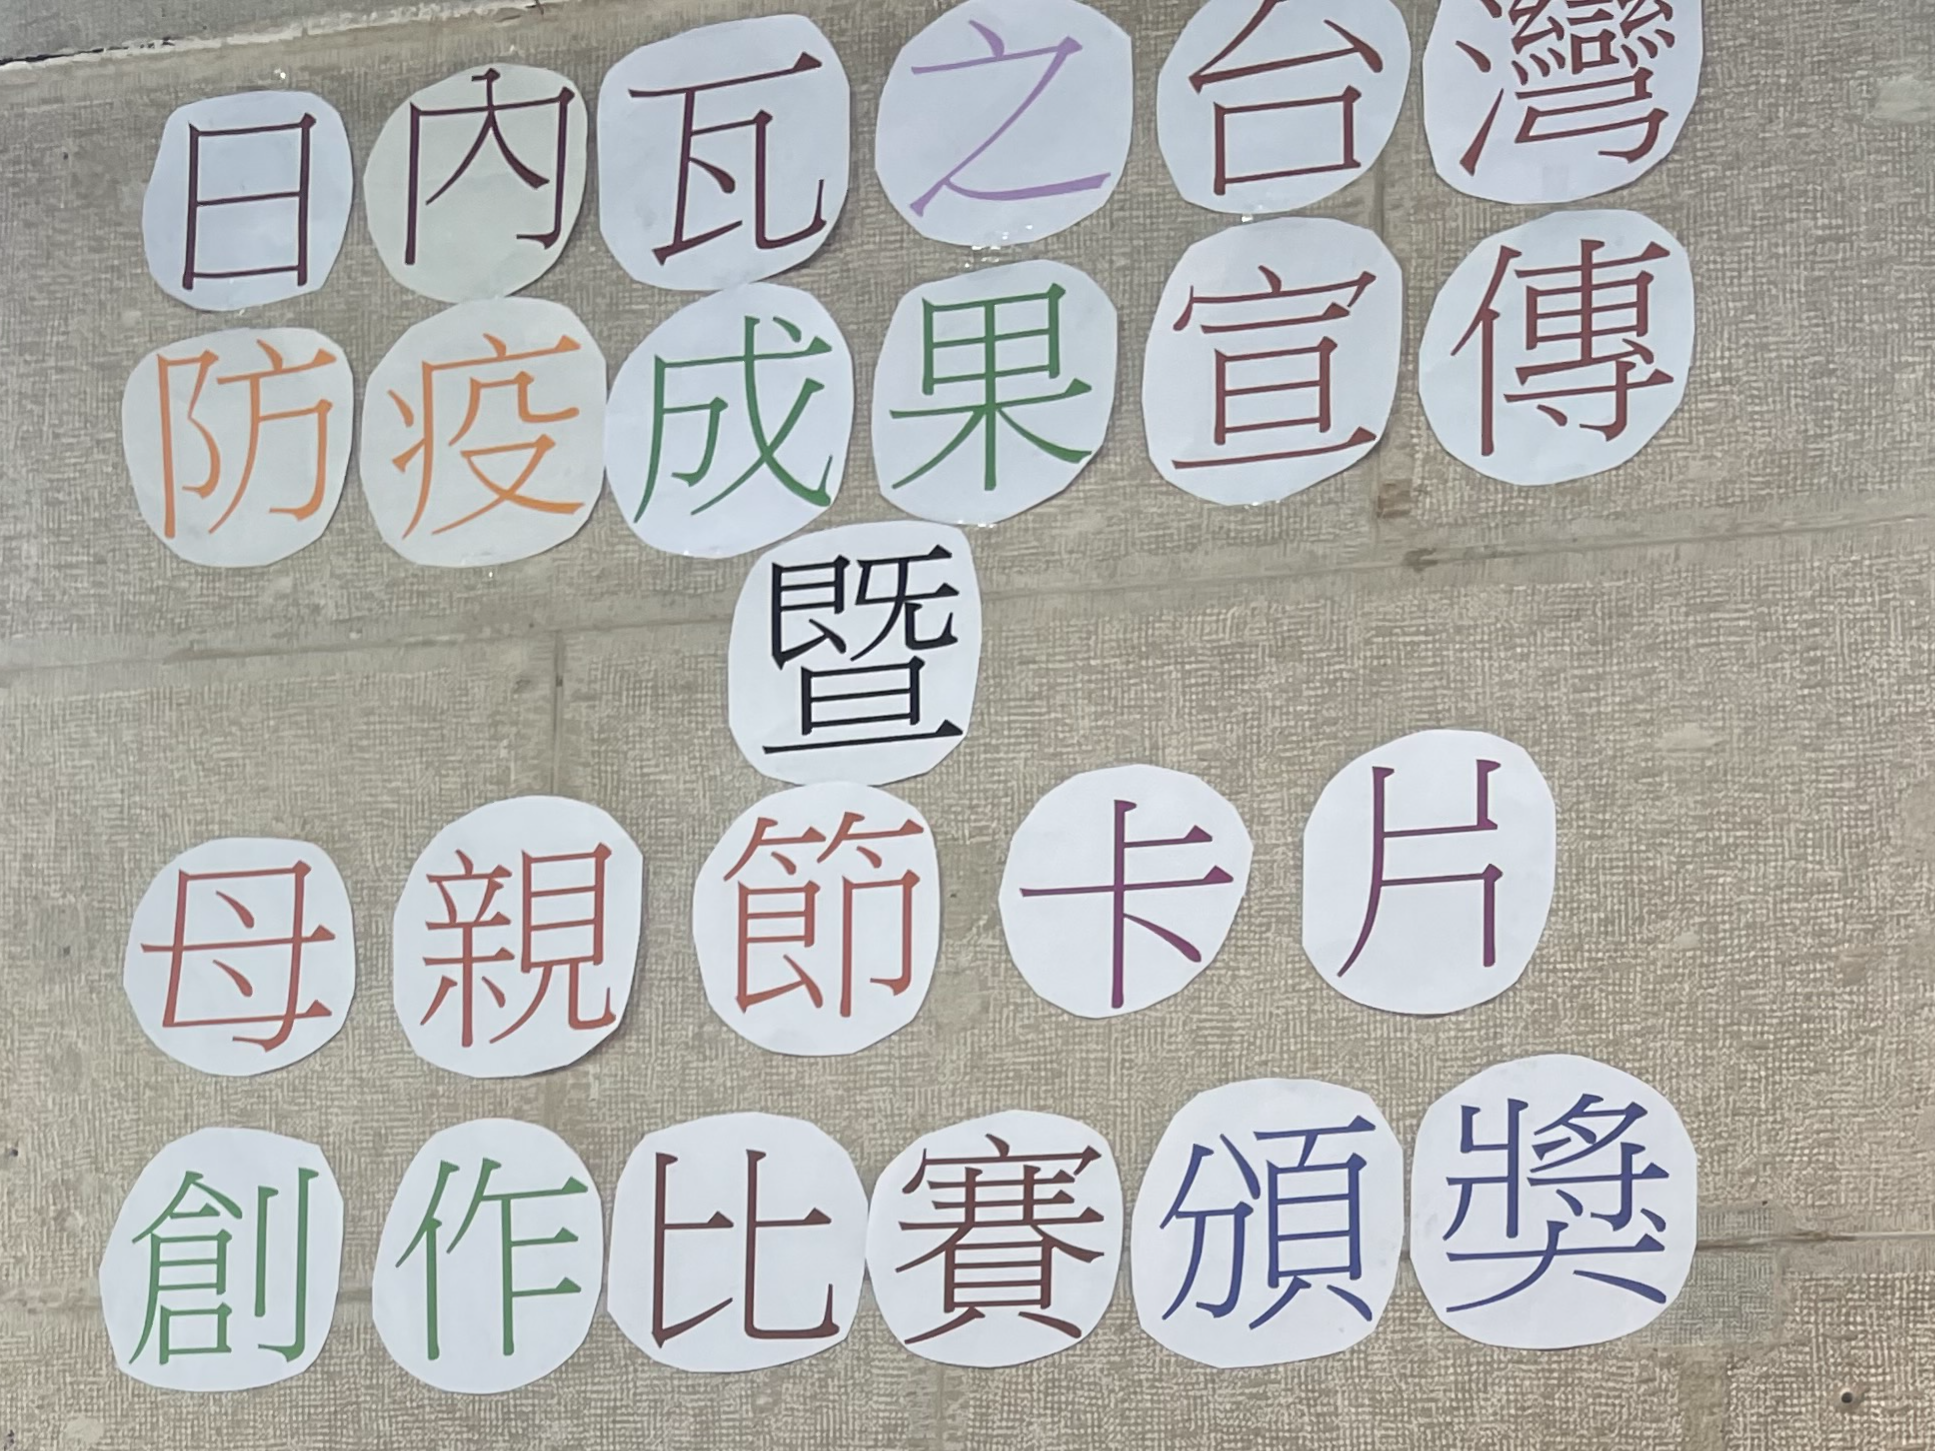 日內瓦之台灣
防疫成果宣傳
暨
母親節卡片
創作比賽頒獎